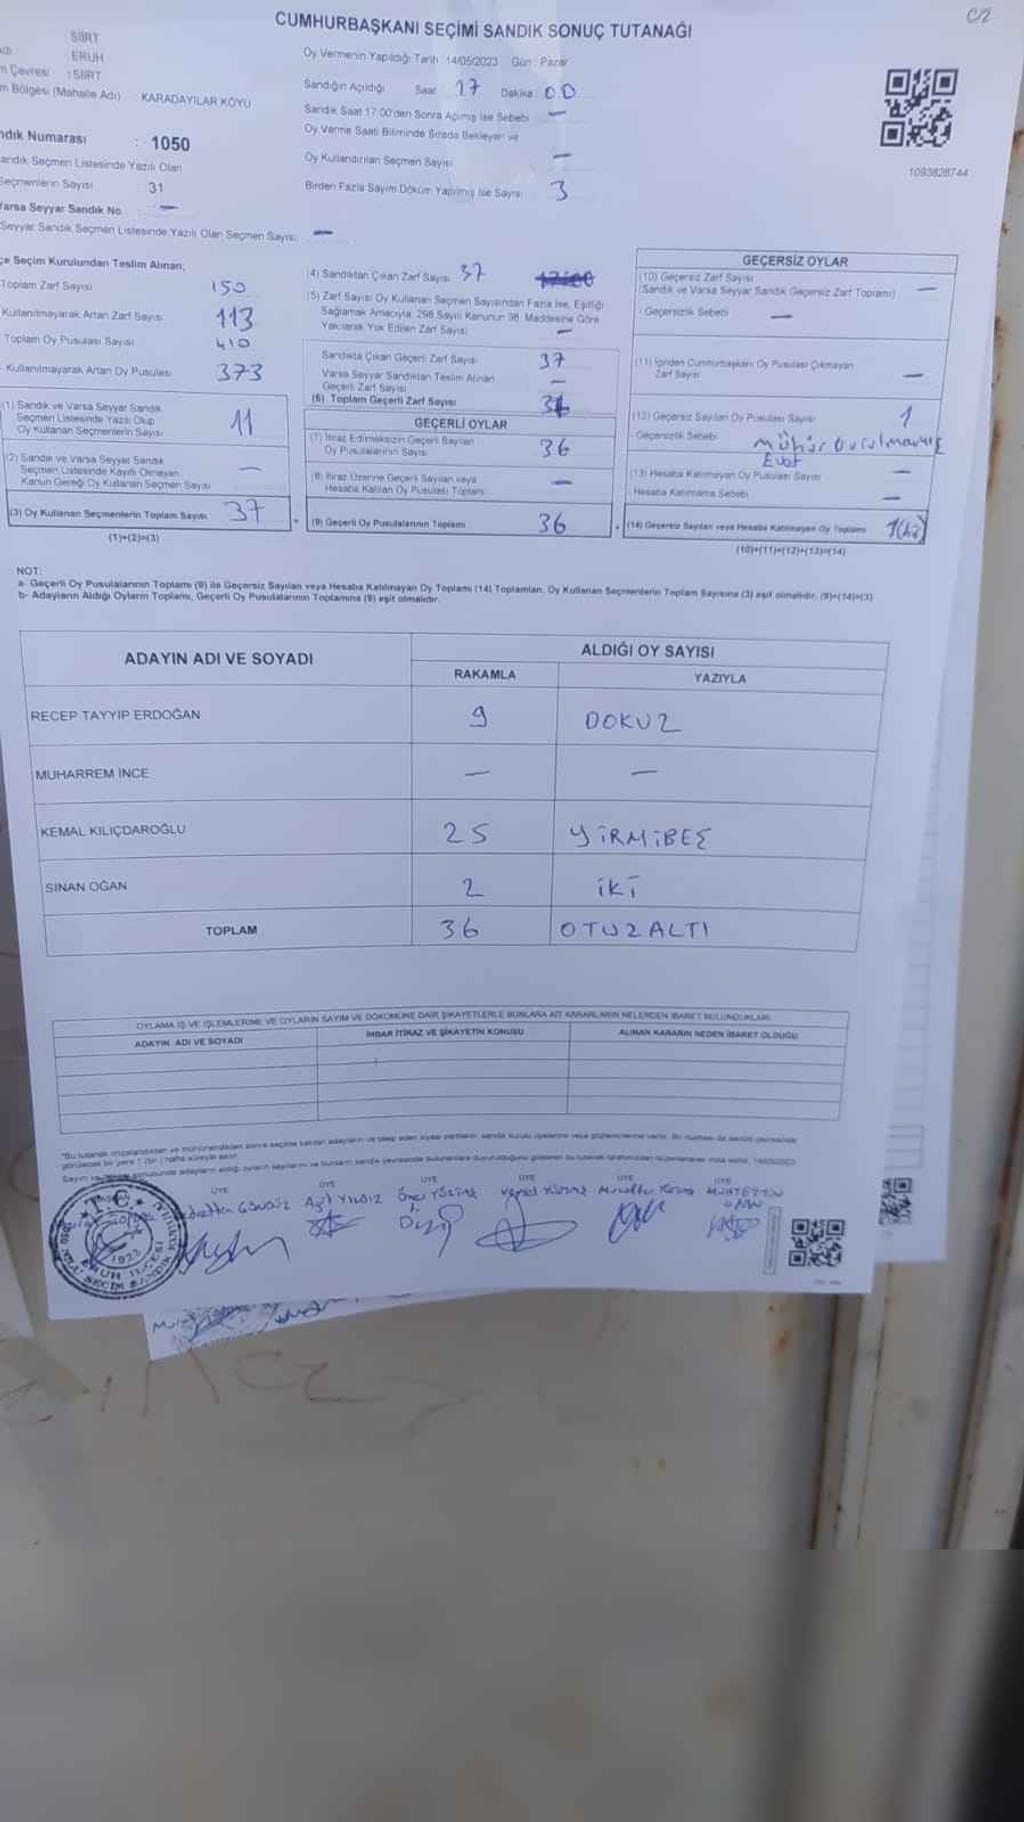 C/2
CUMHURBAŞKANI SEÇİMİ SANDIK SONUÇ TUTANAĞI
SİİRT
ERUH
m Çevresi : SİİRT
m Bölgesi (Mahalle Adı) KARADAYILAR KÖYÜ
ndık Numarası : 1050
andık Seçmen Listesinde Yazılı Olan
Seçmenlerin Sayısı 31
Varsa Seyyar Sandık No —
Seyyar Sandık Seçmen Listesinde Yazılı Olan Seçmen Sayısı —
Oy Vermenin Yapıldığı Tarih 14/05/2023 Gün : Pazar
Sandığın Açıldığı Saat 17 Dakika 00
Sandık Saat 17:00'den Sonra Açılmış İse Sebebi —
Oy Verme Saati Bitiminde Sırada Bekleyen ve
Oy Kullandırılan Seçmen Sayısı —
Birden Fazla Sayım Döküm Yapılmış İse Sayısı 3
1093828744
çe Seçim Kurulundan Teslim Alınan;
Toplam Zarf Sayısı 150
Kullanılmayarak Artan Zarf Sayısı 113
Toplam Oy Pusulası Sayısı 410
Kullanılmayarak Artan Oy Pusulası 373
(1) Sandık ve Varsa Seyyar Sandık
Seçmen Listesinde Yazılı Olup
Oy Kullanan Seçmenlerin Sayısı 11
(2) Sandık ve Varsa Seyyar Sandık
Seçmen Listesinde Kayıtlı Olmayan
Kanun Gereği Oy Kullanan Seçmen Sayısı —
(3) Oy Kullanan Seçmenlerin Toplam Sayısı 37
(1)+(2)=(3)
(4) Sandıktan Çıkan Zarf Sayısı 37
(5) Zarf Sayısı Oy Kullanan Seçmen Sayısından Fazla İse, Eşitliği
Sağlamak Amacıyla 298 Sayılı Kanunun 98. Maddesine Göre
Yakılarak Yok Edilen Zarf Sayısı —
Sandıkta Çıkan Geçerli Zarf Sayısı 37
Varsa Seyyar Sandıktan Teslim Alınan
Geçerli Zarf Sayısı —
(6) Toplam Geçerli Zarf Sayısı
GEÇERLİ OYLAR
(7) İtiraz Edilmeksizin Geçerli Sayılan
Oy Pusulalarının Sayısı 36
(8) İtiraz Üzerine Geçerli Sayılan veya
Hesaba Katılan Oy Pusulası Toplamı —
(9) Geçerli Oy Pusulalarının Toplamı 36
GEÇERSİZ OYLAR
(10) Geçersiz Zarf Sayısı
(Sandık ve Varsa Seyyar Sandık Geçersiz Zarf Toplamı) —
Geçersizlik Sebebi —
(11) İçinden Cumhurbaşkanı Oy Pusulası Çıkmayan
Zarf Sayısı —
(12) Geçersiz Sayılan Oy Pusulası Sayısı 1
Geçersizlik Sebebi mühür vurulmamış
Evet
(13) Hesaba Katılmayan Oy Pusulası Sayısı —
Hesaba Katılmama Sebebi —
(14) Geçersiz Sayılan veya Hesaba Katılmayan Oy Toplamı 1(bir)
(10)+(11)+(12)+(13)=(14)
NOT:
a- Geçerli Oy Pusulalarının Toplamı (9) ile Geçersiz Sayılan veya Hesaba Katılmayan Oy Toplamı (14) Toplamları, Oy Kullanan Seçmenlerin Toplam Sayısına (3) eşit olmalıdır. (9)+(14)=(3)
b- Adayların Aldığı Oyların Toplamı, Geçerli Oy Pusulalarının Toplamına (9) eşit olmalıdır.
ADAYIN ADI VE SOYADI ALDIĞI OY SAYISI
RAKAMLA YAZIYLA
RECEP TAYYİP ERDOĞAN 9 DOKUZ
MUHARREM İNCE — —
KEMAL KILIÇDAROĞLU 25 YİRMİBEŞ
SİNAN OĞAN 2 İKİ
TOPLAM 36 OTUZALTI
OYLAMA İŞ VE İŞLEMLERİNE VE OYLARIN SAYIM VE DÖKÜMÜNE DAİR ŞİKAYETLERLE BUNLARA AİT KARARLARIN NELERDEN İBARET BULUNDUKLARI
ADAYIN ADI VE SOYADI İHBAR İTİRAZ VE ŞİKAYETİN KONUSU ALINAN KARARIN NEDEN İBARET OLDUĞU
ÜYE ÜYE ÜYE ÜYE ÜYE ÜYE
T.C.